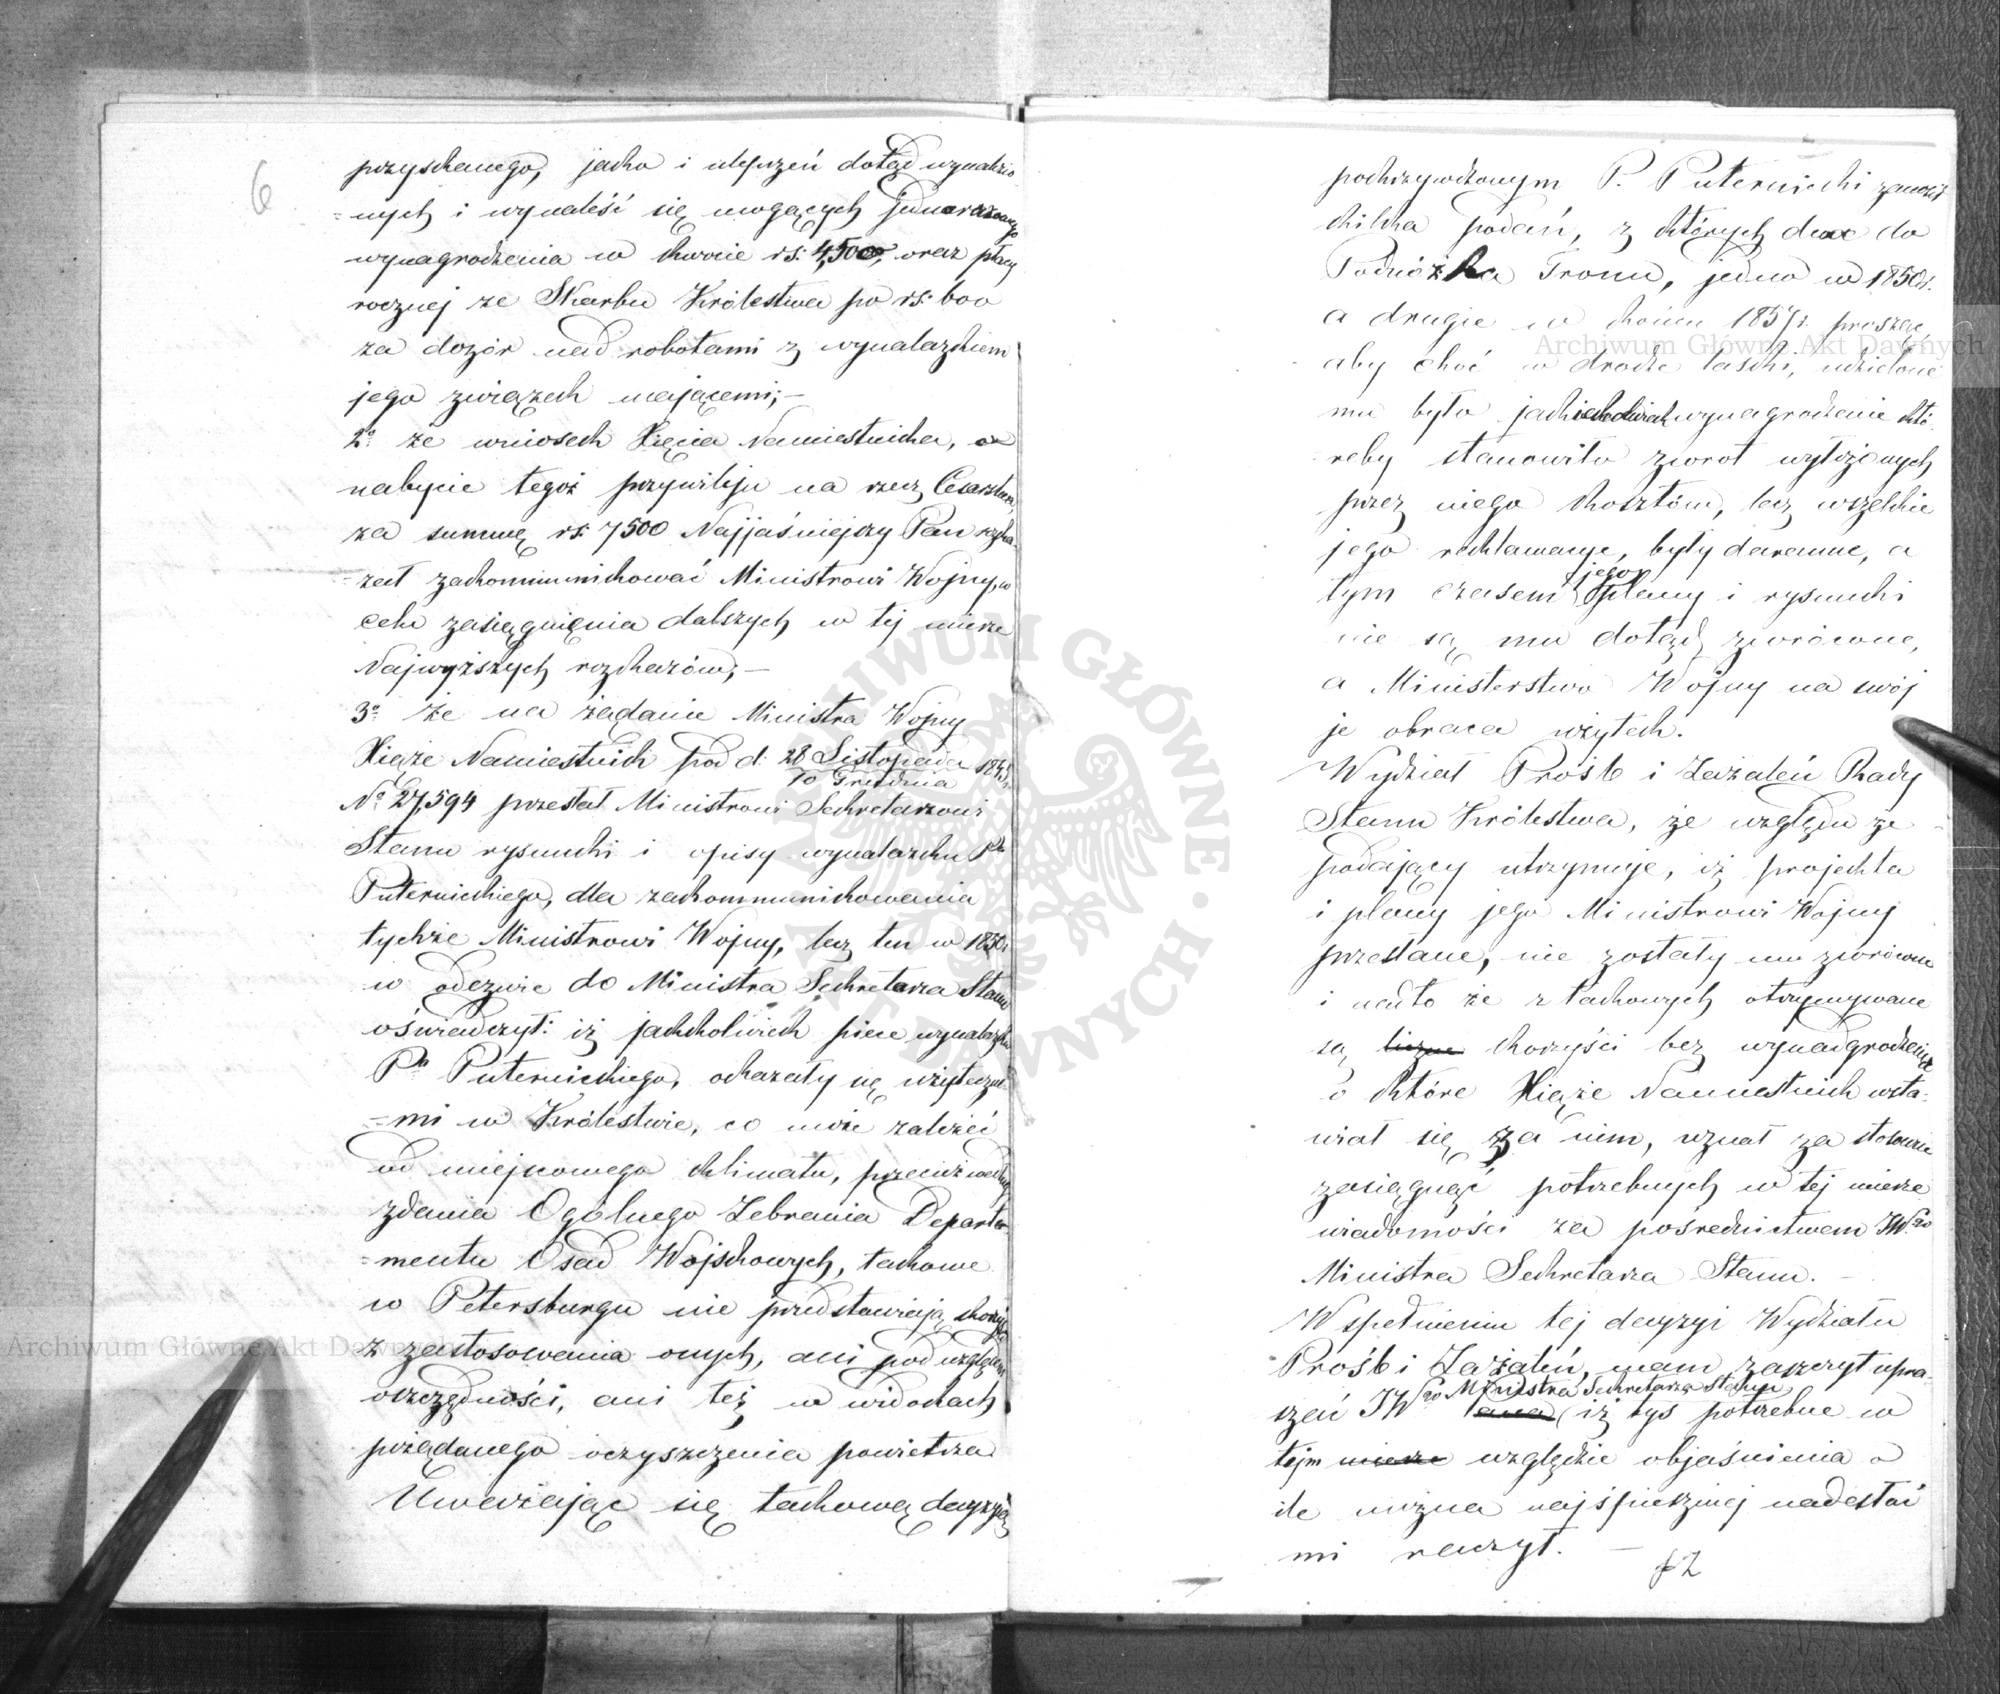 6
przyskanego, jako i ulepszeń dotąd wynalezio-
=nych i wynaleść się mogących jednorazowego
wynagrodzenia w kwocie rs: 4,500, oraz płacy
rocznej ze Skarbu Królestwa po rs: 600
za dozór nad robotami z wynalazkiem
jego związek mającemi;—
2° że wniosek Xięcia Namiestnika, o
nabycie tegoż przywileju na rzecz Cesarstwa
za summę rs: 7500 Najjaśniejszy Pan rozka-
=zał zakommunikować Ministrowi Wojny, w
celu zasiągnięnia dalszych w tej mierze
Najwyższych rozkazów;—
3° że na żądanie Ministra Wojny
Xiąże Namiestnik pod d: 28 Listopada
10 Grudnia
N° 27,594 przesłał Ministrowi Sekretarzowi
Stanu rysunki i opisy wynalazku Pa
Puternickiego, dla zakommunikowania
tychże Ministrowi Wojny, lecz ten w 1850 r
w odezwie do Ministra Sekretarza Stanu
oświadczył: iż jakkolwiek piece wynalazku
Pa Puternickiego, okazały się użyteczne-
=mi w Królestwie, co może zależeć
od miejscowego klimatu, przecież według
zdania Ogólnego Zebrania Departa-
=mentu Osad Wojskowych, takowe
w Petersburgu nie przedstawiają korzyści
z zastosowania onych, ani pod względem
oszczędności, ani też w widokach
pożądanego oczyszczenia powietrza
Uważając się takową decyzyą
pokrzywdzonym P. Puternicki zanosił
kilka podań, z których dwa do
Podnóżka Tronu, jedno w 1850 r.
a drugie w końcu 1857 r. prosząc,
aby choć w drodze łaski, udzielone
mu było jakiekolwiek wynagrodzenie któ-
reby stanowiło zwrot wyłożonych
przez niego kosztów, lecz wszelkie
jego reklamacye, były daremne, a
tym czasem jego plany i rysunki
nie są mu dotąd zwrócone,
a Ministerstwo Wojny na swój
je obraca użytek.
Wydział Próśb i Zażaleń Rady
Stanu Królestwa, ze względu że
podający utrzymuje, iż projekta
i plany jego Ministrowi Wojny
przesłane, nie zostały mu zwrócone
i nadto że z takowych otrzymywane
są liczne korzyści bez wynadgrodzenia
o które Xiąże Namiestnik wsta-
wiał się za nim, uznał za stosowne
zasiągnąć potrzebnych w tej mierze
wiadomości za pośrednictwem JWgo
Ministra Sekretarza Stanu.—
W spełnieniu tej decyzyi Wydziału
Próśb i Zażaleń, mam zaszczyt upra-
szać JWgo Ministra Sekretarza Stanu iż byś potrzebne w
tejm mierze względzie objaśnienia o
ile można najśpieszniej nadesłać
mi raczył.—
Archiwum Główne Akt Dawnych
Archiwum Główne Akt Dawnych
ARCHIWUM GŁÓWNE AKT DAWNYCH